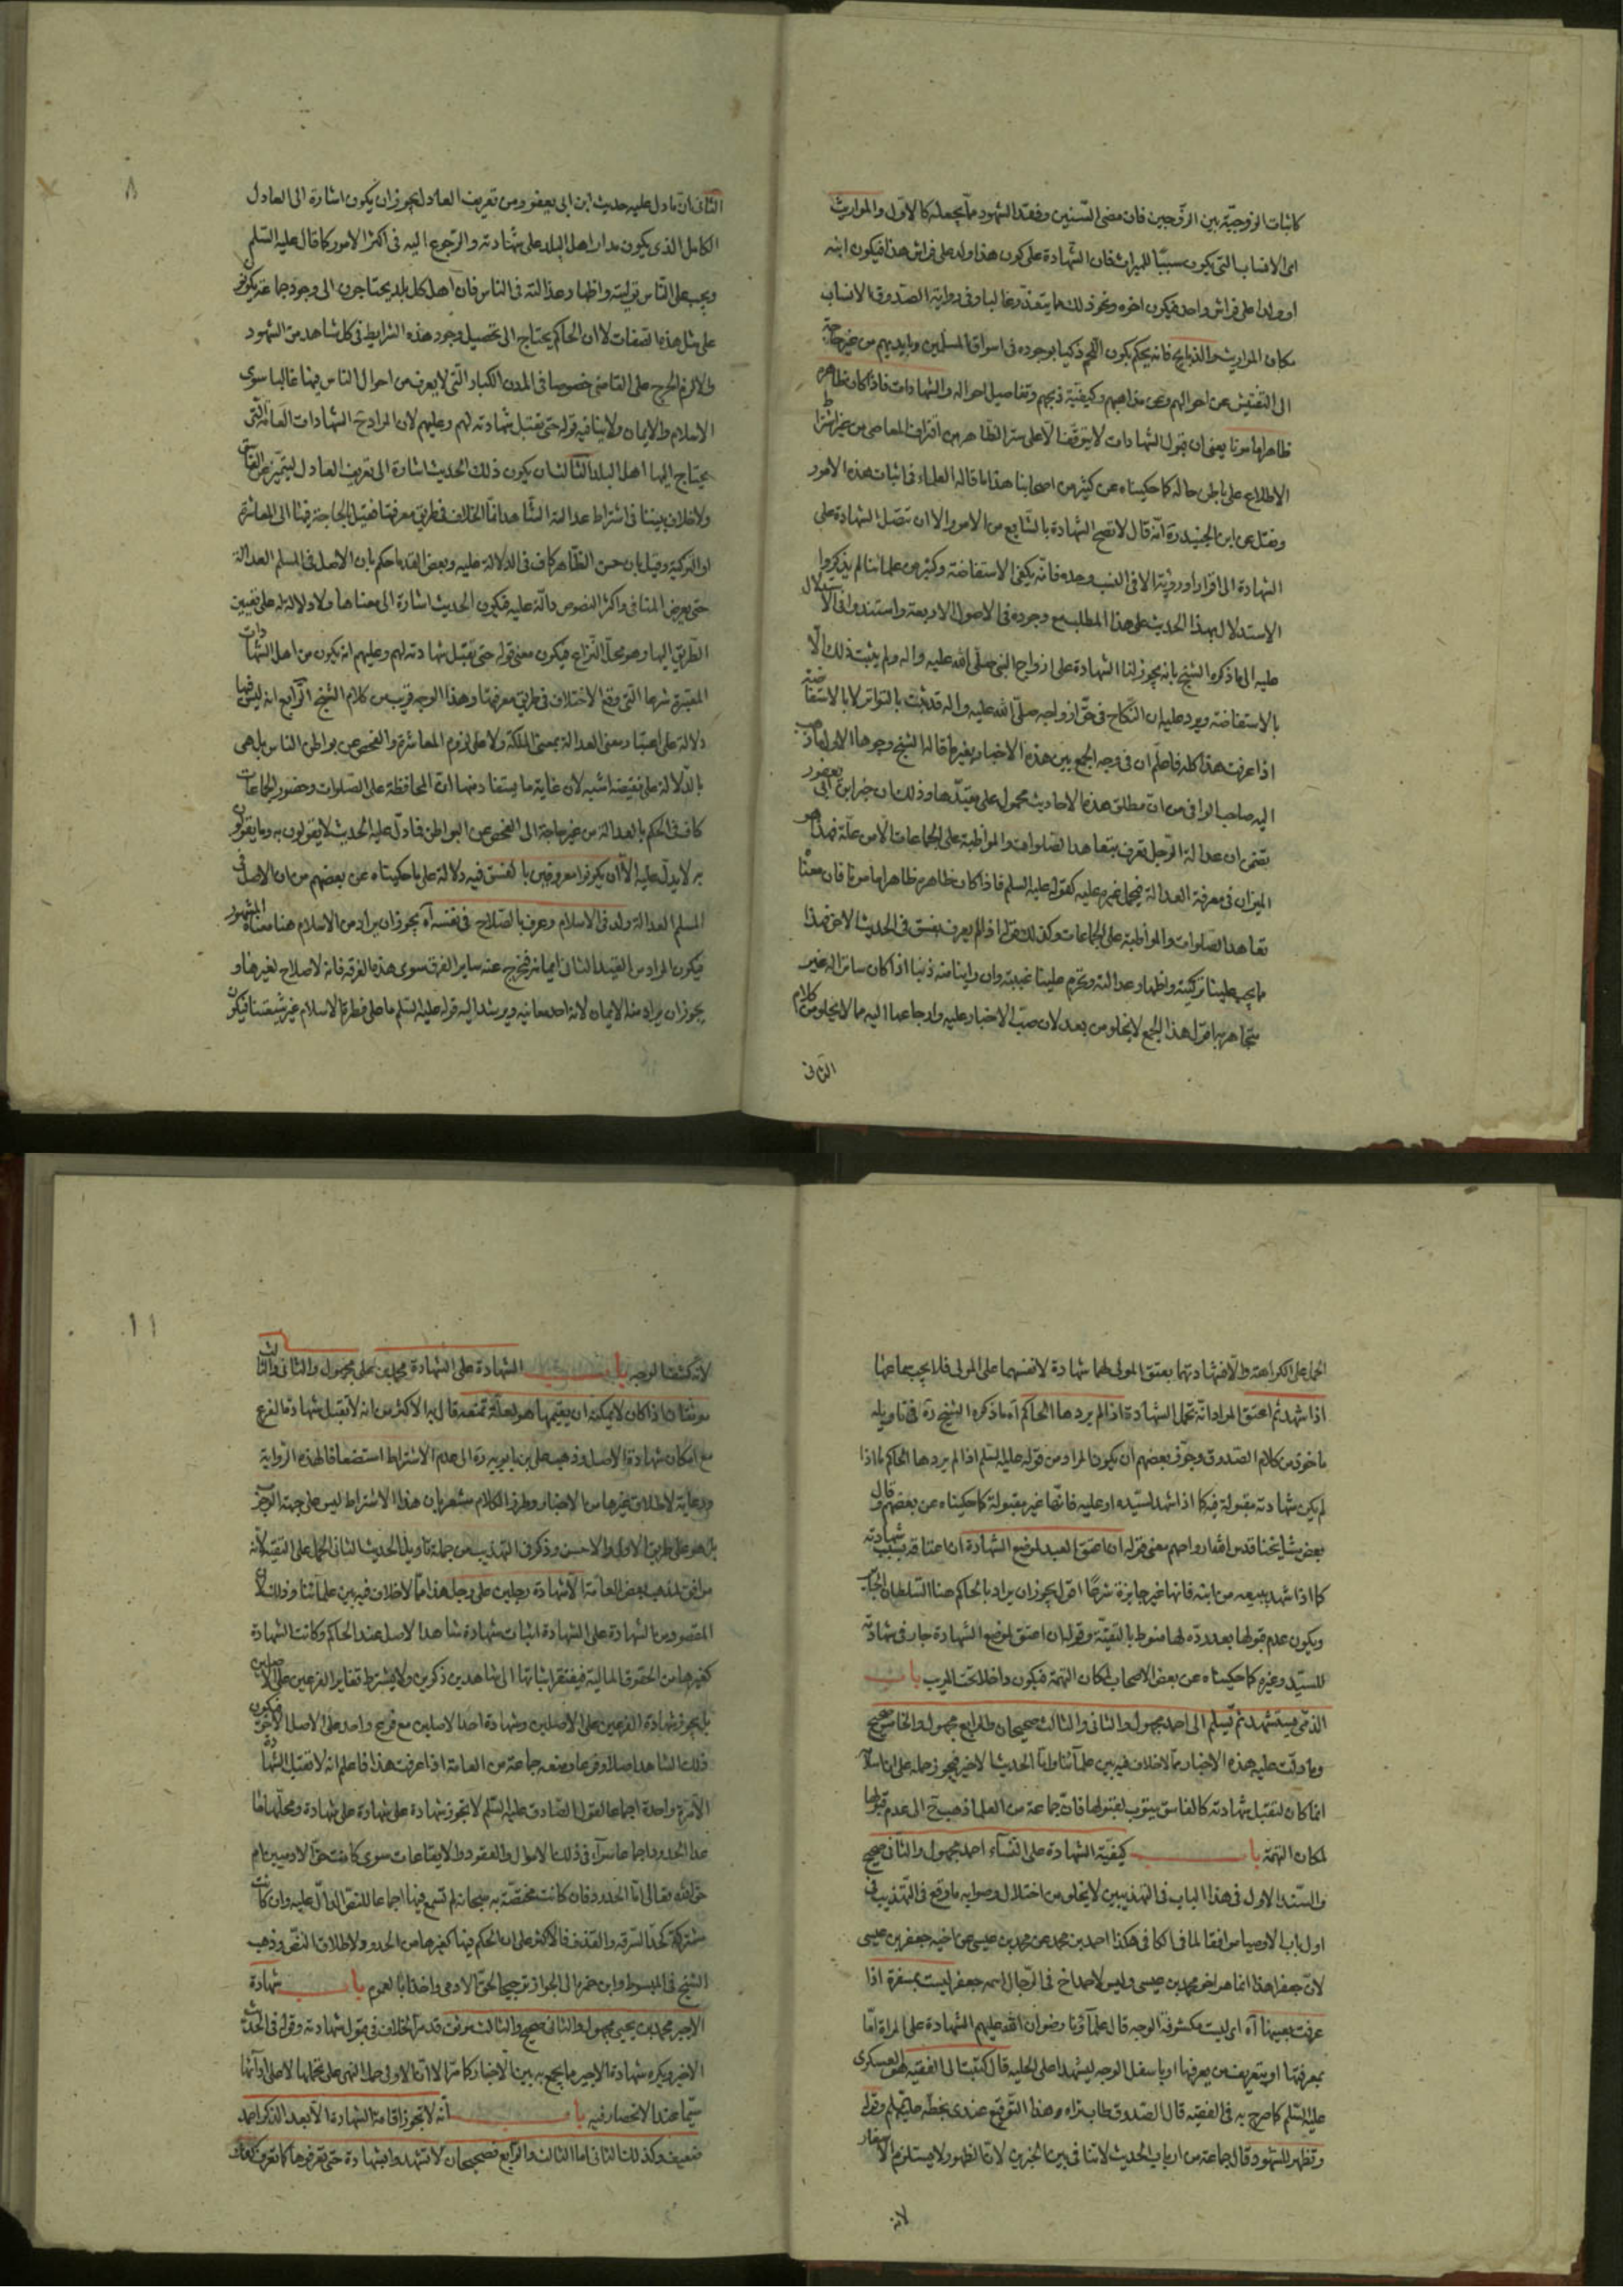 كاثبات الزوجيّة بين الزّوجين فان مضى السّنين وفقد الشهود مما يجعله كالاول والمواريث
اى الانساب التى يكون سببًا للميراث فان الشهادة على كون هذا ولد على فراش هذا فيكون ابنه
او ولدا على فراش واحد فيكون اخوه ونحو ذلك مما يتعذّر غالبا وفى رواية الصّدوق الانساب
مكان المواريث والذبايح فانه يحكم بكون اللحم ذكيا بوجوده فى اسواق المسلمين وبايديهم من غير حاجة
الى التفتيش عن احوالهم وعن مذاهبهم وكيفيّة ذبحهم وتفاصيل احواله والشهادات فاذا كان ظاهره
ظاهرا مامونا يعنى ان قبول الشهادات لا يتوقّف الّا على ستر الظاهر من اقتراف المعاصى من غير اشتراط
الاطلاع على باطن حاله كما حكيناه عن كثير من اصحابنا هذا ما قاله العلماء فى اثبات هذه الامور
ونقل عن ابن الجنيد ره انّه قال لا تصح الشهادة بالشّايع من الامور الا ان تتصل الشهادة على
الشهادة الى اقرار او رؤية الا فى النسب وحده فانّه يكفى الاستفاضة وكثير من علمائنا لم يذكروا
الاستدلال بهذا الحديث على هذا المطلب مع وجوده فى الاصول الاربعة واستندوا فى الاستدلال
عليه الى ما ذكره الشيخ بانه يجوز لنا الشهادة على ازواج النبى صلّى الله عليه واله ولم يثبت ذلك الّا
بالاستفاضة ويرد عليه ان النّكاح فى حقّ ازواجه صلّى الله عليه واله قد ثبت بالتواتر لا بالاستفاضة
اذا عرفت هذا كله فاعلم ان فى وجه الجمع بين هذه الاخبار بغير ما قاله الشيخ وجوها الاول ما ذهب
اليه صاحب الوافى من انّ مطلق هذه الاحاديث محمول على مقيّدها وذلك ان خبر ابن ابى يعفور
تضمن ان عدالة الرّجل تعرف بتعاهد الصلوات والمواظبة على الجماعات الّا من علّة فهذا هو
الميزان فى معرفة العدالة فيحمل غيره عليه كقوله عليه السلم فاذا كان ظاهره ظاهرا مامونا فان معناه
تعاهد الصلوات والمواظبة على الجماعات وكذلك قوله اذا لم يعرف بفسق فى الحديث الاخر فهذا
ما يجب علينا تزكيته واظهار عدالته ويحرم علينا غيبته وان راينا منه ذنبا اذا كان ساترا له غير
متجاهر به اقول هذا الجمع لا يخلو من بعد لان صبّ الاخبار عليه وارجاعها اليه مما لا يخلو من كلام
الثانى
٨
الثانى ان ما دل عليه حديث ابن ابى يعفور من تعريف العادل يجوز ان يكون اشارة الى العادل
الكامل الذى يكون مدار اهل البلد على شهادته والرّجوع اليه فى اكثر الامور كما قال عليه السّلم
ويجب على النّاس توليته واظهار عدالته فى الناس فان اهل كل بلد يحتاجون الى وجود جماعة يكونو
على مثل هذه الصفات لا ان الحاكم يحتاج الى تحصيل وجود هذه الشرايط فى كل شاهد من الشهود
والا لزم الحرج على القاضى خصوصا فى المدن الكبار الّتى لا يعرف من احوال الناس فيها غالبا سوى
الاسلام والايمان ولا ينافيه قوله حتى تقبل شهادته لهم وعليهم لان المراد ح الشهادات العامة الّتى
يحتاج اليها اهل البلد الثالث ان يكون ذلك الحديث اشارة الى تعريف العادل ليتميز عن الفاسق
ولا خلاف بيننا فى اشتراط عدالة الشّاهد انما الخلاف فى طريق معرفتها فقيل بالحاجة فيها الى المعاشرة
او التزكية وقيل بان حسن الظّاهر كاف فى الدلالة عليه وبعض القدماء حكم بان الاصل فى المسلم العدالة
حتى يعرض المنافى واكثر النصوص دالّة عليه فيكون الحديث اشارة الى معناها ولا دلالة له على تعيين
الطّريق اليها وهو محل النّزاع فيكون معنى قوله حتى تقبل شهادته لهم وعليهم انه يكون من اهل الشهادات
المعتبرة شرعا التى وقع الاختلاف فى طريق معرفتها وهذا الوجه قريب من كلام الشيخ الرّابع انه ليس فيها
دلالة على اعتبار معنى العدالة بمعنى الملكة ولا على لزوم المعاشرة والفحص عن بواطن الناس بل هى
بالدّلالة على نقيضه اشبه لان غاية ما يستفاد منها انّ المحافظة على الصّلوات وحضور الجماعات
كاف فى الحكم بالعدالة من غير حاجة الى الفحص عن البواطن فما دلّ عليه الحديث لا يقولون به وما يقولون
به لا يدلّ عليه الّا ان يكونوا معروفين بالفسق فيه دلالة على ما حكيناه عن بعضهم من ان الاصل فى
المسلم العدالة ولد فى الاسلام وعرف بالصّلاح فى نفسه آه يجوز ان يراد من الاسلام هنا معناه المشهور
فيكون المراد من القيد الثانى ايمانه فيخرج عنه ساير الفرق سوى هذه الفرقة فانه لا صلاح لغيرها و
يجوز ان يراد منه الايمان لانه احد معانيه ويرشد اليه قوله عليه السّلم ما على فطرة الاسلام غير شيعتنا فيكون
الحمل على الكراهة والّا فشهادتهما بعتق المولى لهما شهادة لانفسهما على المولى فلا يجب سماعها
اذا شهد ثم اعتق المراد انّه تحمّل الشهادة اذا لم يردها الحاكم آه ما ذكره الشيخ ره فى تاويله
ماخوذ من كلام الصّدوق وجوّز بعضهم ان يكون المراد من قوله عليه السّلم اذا لم يردها الحاكم ما اذا
لم يكن شهادته مقبولة فيه كما اذا شهد لسيّده او عليه فانّها غير مقبولة كما حكيناه عن بعضهم وقال
بعض مشايخنا قدس الله ارواحهم معنى قوله ان اعتق العبد لموضع الشهادة ان اعتاقه بسبب شهادته
كما اذا شهد ببيعه من ابنه فانها غير جايزة شرعًا اقول يجوز ان يراد بالحاكم هنا السّلطان الجاير
ويكون عدم قبولها بعد ردّه لها منوط بالتقيّة وقوله ان اعتق لموضع الشهادة جار فى شهادته
للسيّد وغيره كما حكيناه عن بعض الاصحاب لمكان التهمة فيكون داخلا تحت الريب باب
الذمّى يستشهد ثم يسلم الى احد مجهول والثانى والثالث صحيحان والرابع مجهول والخامس صحيح
وما دلّت عليه هذه الاخبار مما لا خلاف فيه بين علمآئنا وامّا الحديث الاخير فيجوز حمله على ان اسلامه
انما كان لتقبل شهادته كالفاسق يتوب لقبولها فانّ جماعة من العلما ذهب ح الى عدم قبولها
لمكان التهمة باب كيفيّة الشهادة على النّسآء احد مجهول والثانى صحيح
والسّند الاول فى هذا الباب فى التهذيبين لا يخلو من اختلال وصوابه ما وقع فى التّهذيب فى
اول باب الاوصياء موافقا لما فى الكافى هكذا احمد بن محمد عن محمد بن عيسى عن اخيه جعفر بن عيسى
لانّ جعفرا هذا انما هو اخو محمد بن عيسى وليس لاحمد اخ فى الرّجال اسمه جعفر ليست بمسفرة اذا
عرفت بعينها آه اى ليست مكشوفة الوجه قال علمآؤنا رضوان الله عليهم الشهادة على المراة امّا
بمعرفتها او بتعريف من يعرفها او باسفار الوجه ليشهد على الحلية قال كتبت الى الفقيه هو العسكرى
عليه السّلم كما صرح به فى الفقيه قال الصّدوق طاب ثراه وهذا التّوقيع عندى بخطّه عليه السلم وقوله
وتظهر للشهود قال جماعة من ارباب الحديث لا تنافى بين الخبرين لانّ الظهور لا يستلزم الاسفار
لانه
١١
لانه كشف الوجه باب الشهادة على الشهادة محمد بن على مجهول والثانى والثالث
موثقان اذا كان لا يمكنه ان يقيمها هو لعلة تمنعه قال به الاكثر من انه لا تقبل شهادة الفرع
مع امكان شهادة الاصل وذهب على بن بابويه ره الى عدم الاشتراط استضعافا لهذه الرّواية
ورعاية لاطلاق غيرها من الاخبار وطرز الكلام مشعر بان هذا الاشتراط ليس على جهة الوجوب
بل هو على طريق الاولى والاحسن وذكر فى التهذيب من جملة تاويل الحديث الثانى الحمل على التقيّة لانه
موافق لمذهب بعض العامة الّا شهادة رجلين على رجل هذا ممّا لا خلاف فيه بين علمائنا وذلك لان
المقصود من الشهادة على الشهادة اثبات شهادة شاهد الاصل عند الحاكم وكانت الشهادة
كغيرها من الحقوق المالية فيفتقر اثباتها الى شاهدين ذكرين ولا يشترط تغاير الفرعين على الاصلين
بل يجوز شهادة الفرعين على الاصلين وشهادة احد الاصلين مع فرع واحد على الاصل الاخر فيكون
ذلك الشاهد اصلا وفرعا ومنعه جماعة من العامة اذا عرفت هذا فاعلم انه لا تقبل الشهادة
الّا مرة واحدة اجماعا لقول الصّادق عليه السّلم لا تجوز شهادة على شهادة على شهادة ومحلّها ما
عدا الحدود اجماعا سوآء فى ذلك الاموال والعقود والايقاعات سوى كانت حق الادميين ام
حق الله تعالى امّا الحدود فان كانت مختصّة به سبحانه لم تسمع فيها اجماعا للنصّ الدّالّ عليه وان كانت
مشتركة كحدّ السّرقة والقذف فالاكثر على ان الحكم فيها كغيرها من الحدود لاطلاق النصّ وذهب
الشيخ فى المبسوط وابن حمزة الى الجواز ترجيحا لحقّ الادمى واخذا بالعموم باب شهادة
الاجير محمد بن يحيى مجهول والثانى صحيح والثالث موثق قد مرّ الخلاف فى قبول شهادته وقوله فى الحديث
الاخير ويكره شهادة الاجير مما يجمع به بين الاخبار كما مرّ الا انّ الاولى حمل النهى على تحملها لا على ادآئها
سيّما عند الانحصار فيه باب انّه لا تجوز اقامة الشهادة الّا بعد الذكر احمد
ضعيف وكذلك الثانى امّا الثالث والرّابع فصحيحان لا تشهدوا بشهادة حتّى تعرفوها كما تعرف كفك